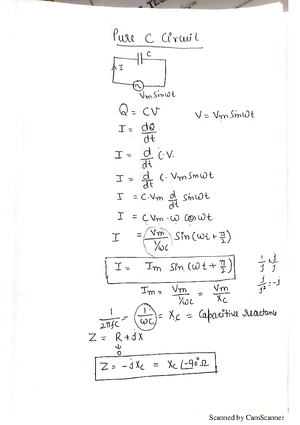 Pure C Circuit
C
I
Vm Sinωt
Q = CV V = Vm Sinωt
I = dQ/dt
I = d/dt C.V.
I = d/dt C. Vm Sinωt
I = C.Vm d/dt Sinωt
I = C Vm. ω Cosωt
I = Vm/(1/ωC) Sin (ωt + π/2)
I = Im Sin (ωt + π/2)
Im = Vm/(1/ωC) = Vm/Xc
1/2πfC = 1/ωC = Xc = Capacitive reactance
Z = R + jX
0
Z = -jXc = Xc ∠-90° Ω
Scanned by CamScanner